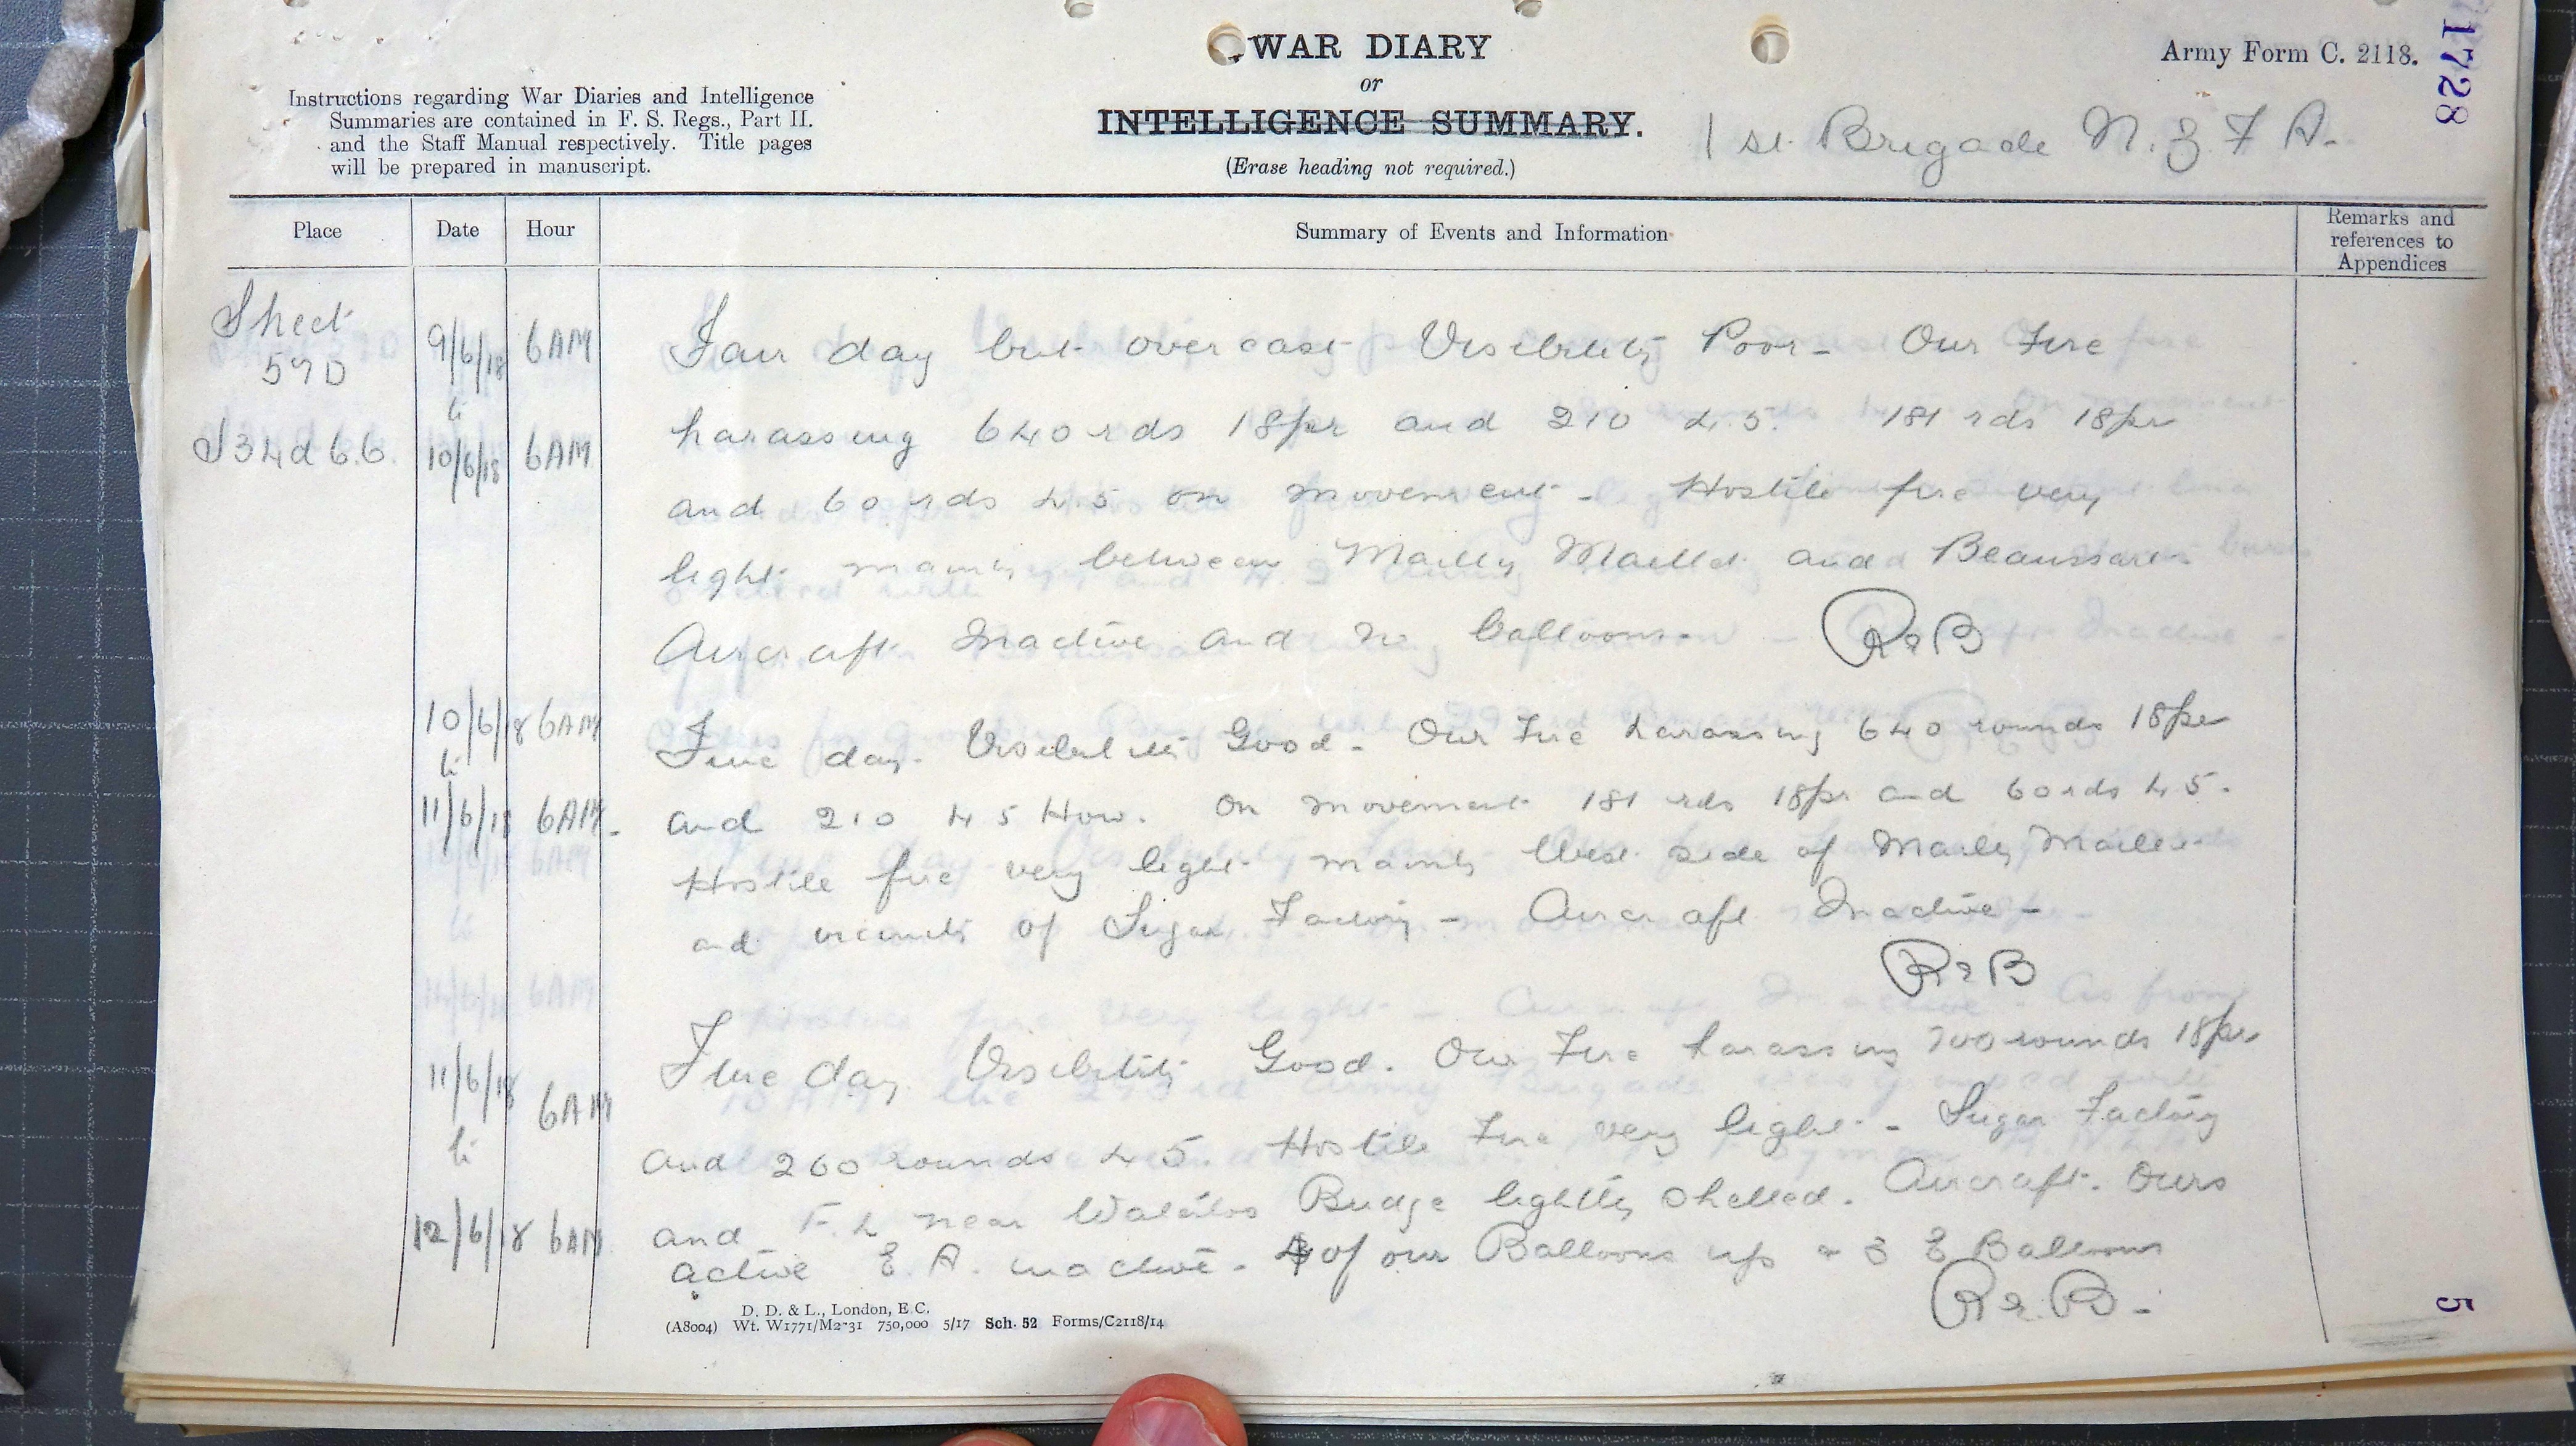 WAR DIARY
or
INTELLIGENCE SUMMARY.
(Erase heading not required.)
Army Form C. 2118.
1728
Instructions regarding War Diaries and Intelligence
Summaries are contained in F. S. Regs., Part II.
and the Staff Manual respectively. Title pages
will be prepared in manuscript.
1st Brigade N.Z F A.
Place
Date
Hour
Summary of Events and Information
Remarks and
references to
Appendices
Sheet
57D
J34d 6.6.
9/6/18 6AM
to
10/6/18 6AM
Fair day but overcast Visibility Poor - Our Fire
harassing 640 rds 18pr and 210 4.5. 181 rds 18pr
and 60 rds 4.5 on movement - Hostile fire very
light mainly between Mailly Maillet and Beaussart
Aircraft Inactive and no balloons.
10/6/18 6AM
to
11/6/18 6AM.
Fine day. Visibility Good - Our Fire harassing 640 rounds 18pr
and 210 4 5 How. On movement 181 rds 18pr and 60 rds 4 5.
Hostile fire very light mainly West side of Mailly Maillet
and vicinity of Sugar Factory - Aircraft Inactive -
11/6/18 6AM
to
12/6/18 6AM
Fine day Visibility Good. Our Fire harassing 700 rounds 18pr
and 260 rounds 4 5. Hostile Fire very light - Sugar Factory
and F. L near Waterloo Bridge lightly shelled. Aircraft. Ours
active E. A. inactive - of our Balloons up - 3 E Balloons
D. D. & L., London, E.C.
(A8004) Wt. W1771/M2731 750,000 5/17 Sch. 52 Forms/C2118/14
5